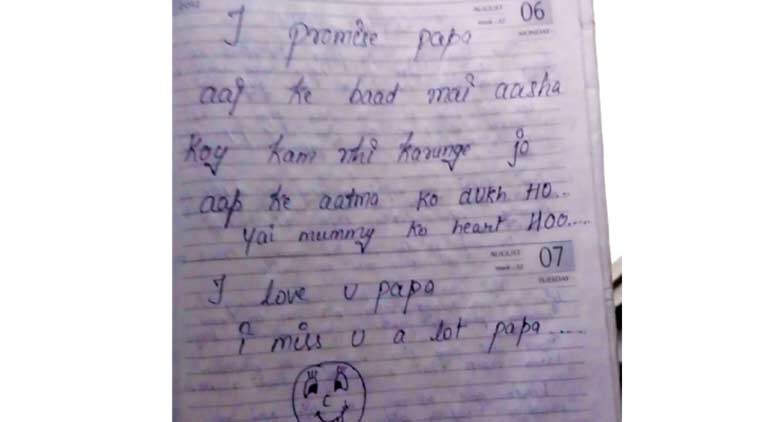 AUGUST 06
Week - 32
MONDAY
I promise papa
aaj ke baad mai aasha
koy kam nhi karunge jo
aap ke aatma ko dukh HO...
yai mummy ko heart HOO.....
AUGUST 07
Week - 32
TUESDAY
I love u papa
i miss u a lot papa.....